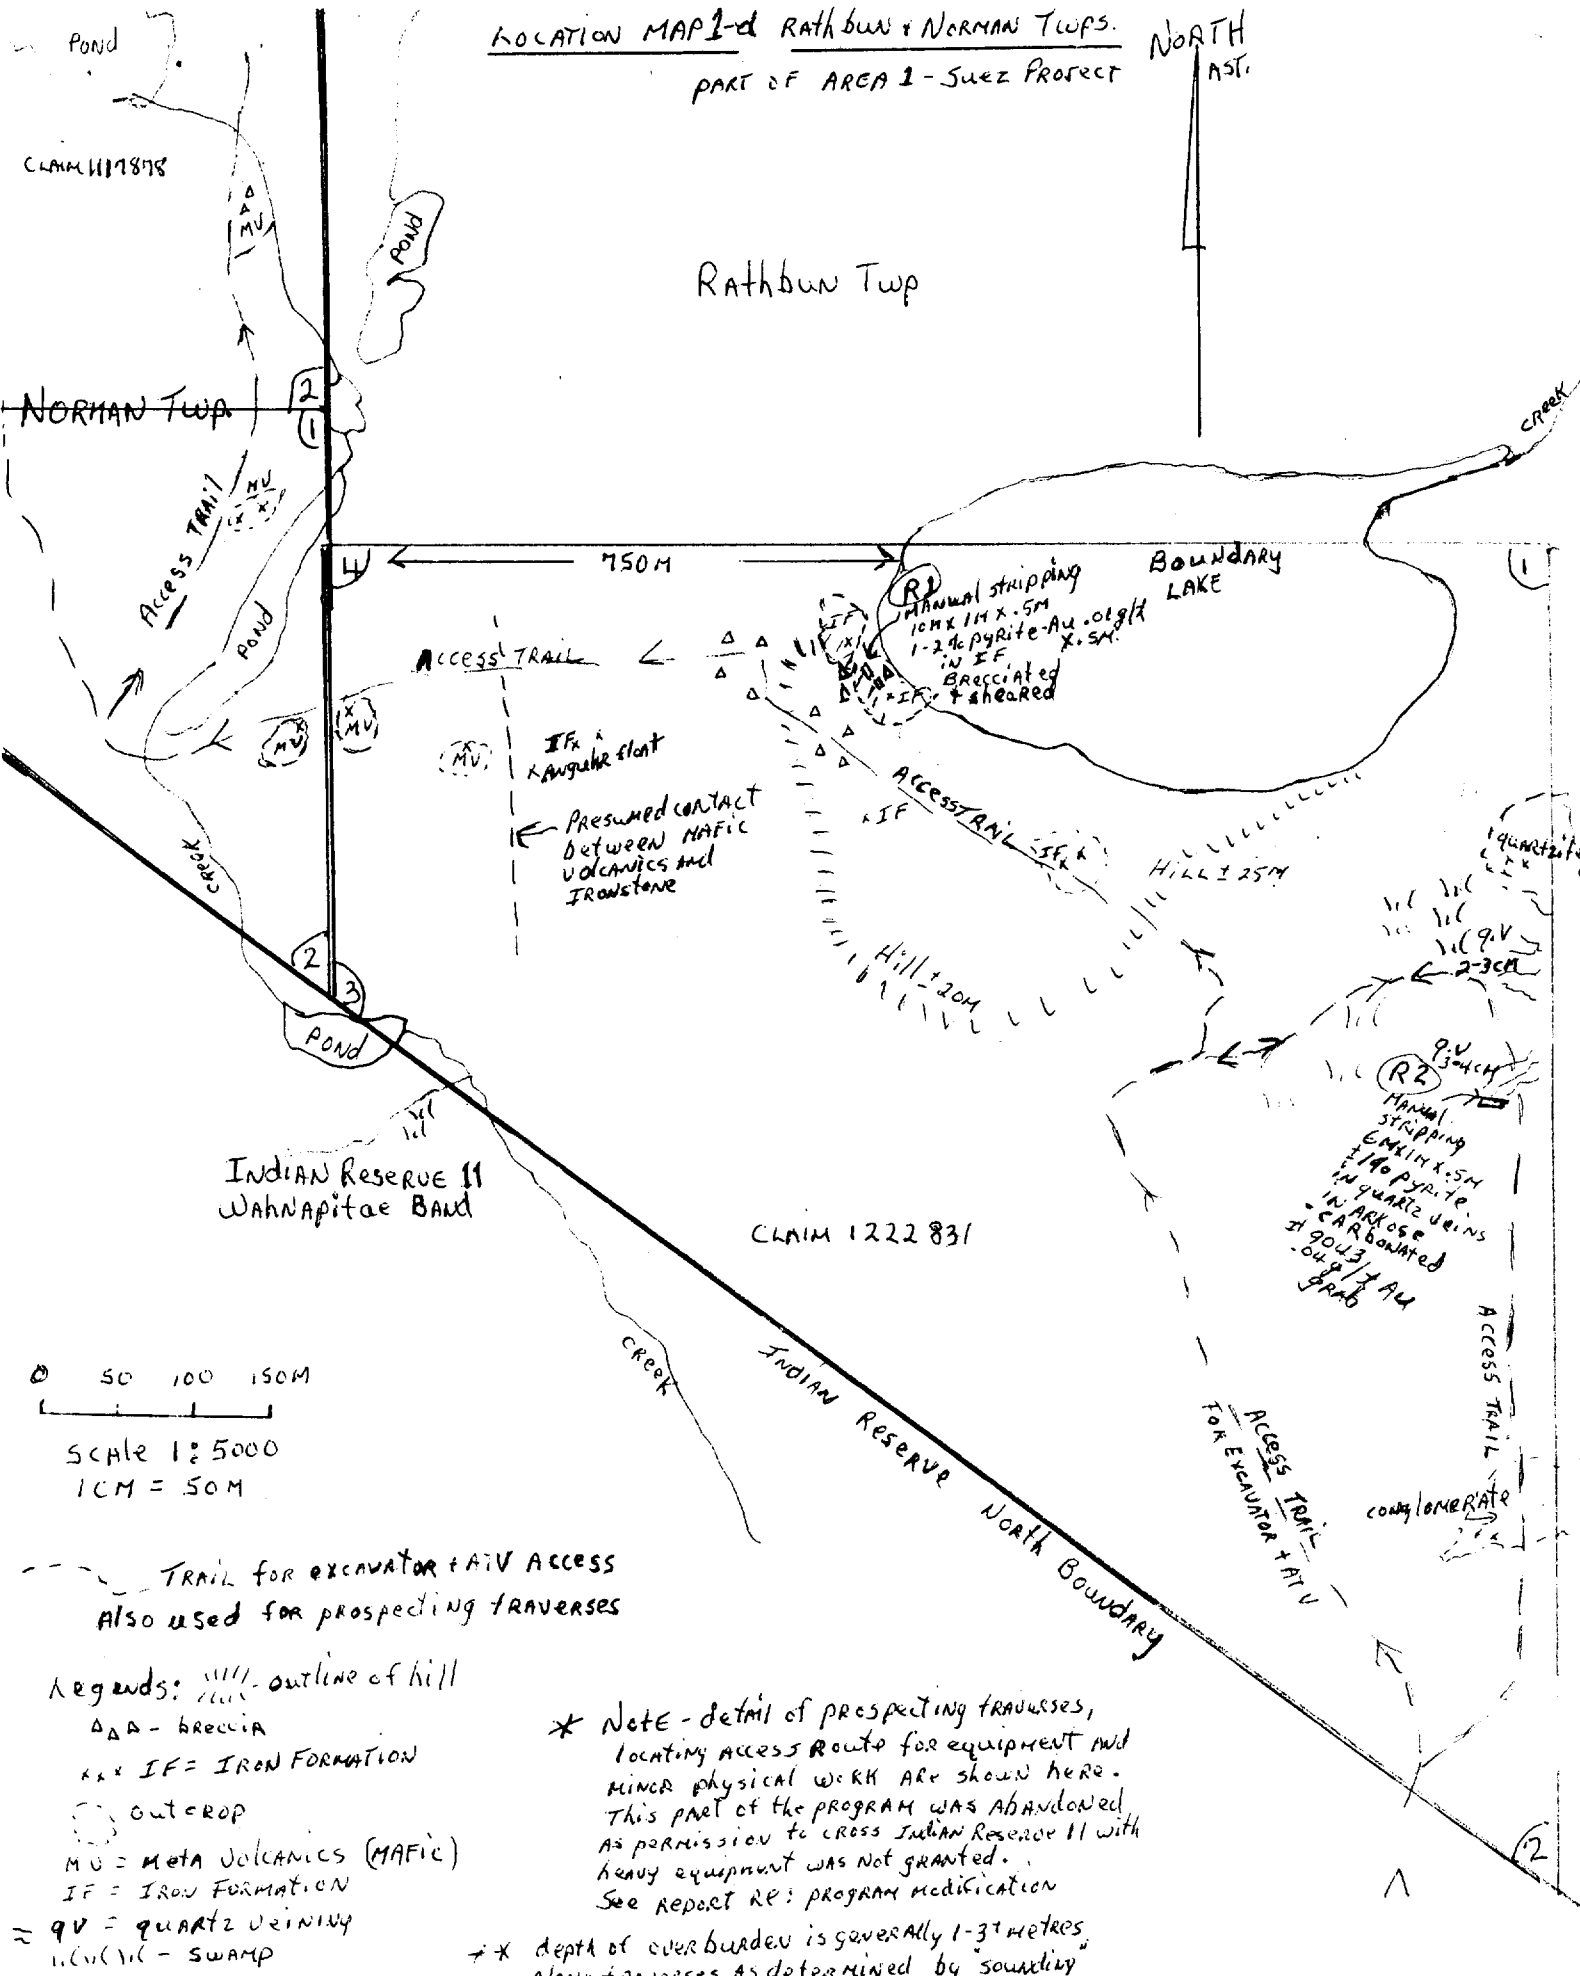 LOCATION MAP 1-d Rathbun & NORMAN TWPS.
PART OF AREA 1 - Suez Project
NORTH
AST.
POND
CLAIM 1117878
MV
POND
Rathbun Twp
NORMAN TWP.
2
1
CREEK
ACCESS TRAIL
MV
x x
POND
4
750M
Boundary
LAKE
1
R1
MANUAL stripping
10M x 1M x .5M
1-2% pyrite-Au .01g/t
x .5M.
in IF
BRECCIATED
+ sheared
IF
IF
ACCESS TRAIL
MV
MV
MV
IF
x Angular float
Presumed contact
between MAFIC
VOLCANICS AND
IRONSTONE
ACCESS TRAIL
x IF
IF x x
Hill ± 25M
Hill ± 20M
quartzite
q.V
2-3CM
q.V
3-4CM
R2
MANUAL
stripping
6MX1MX.5M
±1% pyrite
in quartz veins
IN ARKOSE
- CARBONATED
# 9043
.04g/t Au
GRAB
CREEK
2
3
POND
INDIAN RESERVE 11
WAHNAPITAE BAND
CLAIM 1222831
CREEK
INDIAN RESERVE NORTH BOUNDARY
ACCESS TRAIL
FOR EXCAVATOR + ATV
ACCESS TRAIL
conglomerate
2
0 50 100 150M
SCALE 1:5000
1CM = 50M
TRAIL for excavator + ATV Access
Also used for prospecting traverses
Legends: outline of hill
Δ Δ Δ - breccia
x x x IF = IRON FORMATION
outcrop
MV = META VOLCANICS (MAFIC)
IF = IRON FORMATION
= qv = quartz veining
- SWAMP
* NOTE - detail of prospecting traverses,
locating Access Route for equipment AND
MINOR physical work ARE shown here.
This part of the PROGRAM WAS ABANDONED
AS permission to cross Indian Reserve 11 with
heavy equipment was not granted.
See Report Re: program modification
** depth of overburden is generally 1-3+ metres
along traverses as determined by "sounding"